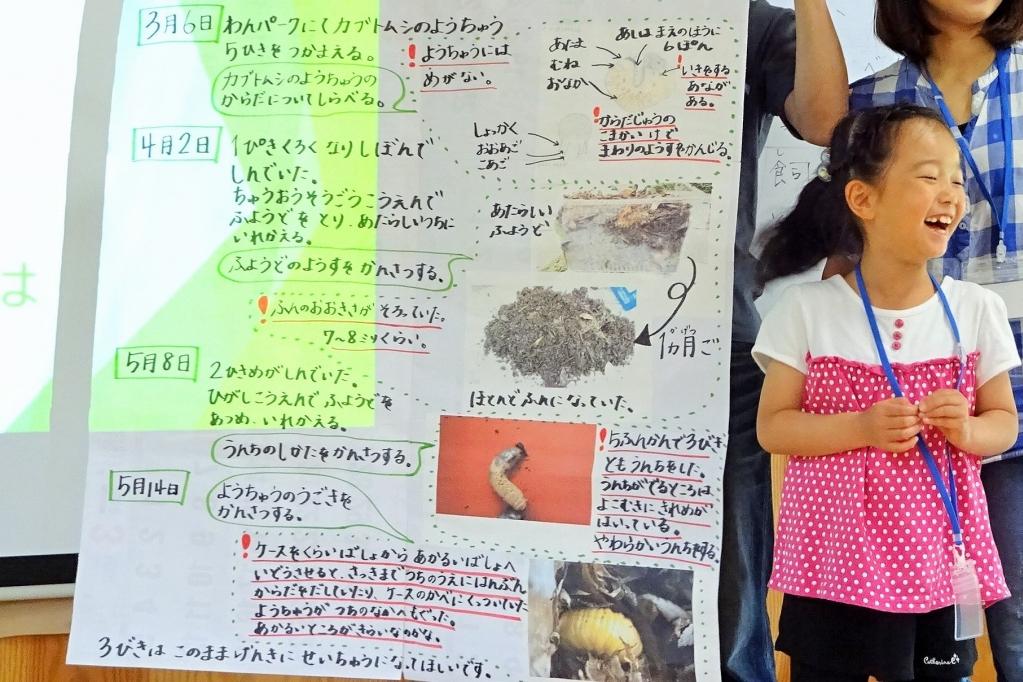 は
3月6日
わんパークにてカブトムシのようちゅう
5ひきをつかまえる。
カブトムシのようちゅうの
からだについてしらべる。
!ようちゅうには
めがない。
あたま
むね
おなか
あしはまえのほうに
6ぽん
!いきをする
あなが
ある。
しょっかく
おおあご
こあご
!からだじゅうの
こまかいけで
まわりのようすをかんじる。
4月2日
1ぴきくろくなりしぼんで
しんでいた。
ちゅうおうそうごうこうえんで
ふようどをとり、あたらしいつちに
いれかえる。
ふようどのようすをかんさつする。
!ふんのおおきさがそろっていた。
7〜8ミリくらい。
あたらしい
ふようど
1カ月ご
かげつ
ほとんどふんになっていた。
5月8日
2ひきめがしんでいた。
ひがしこうえんでふようどを
あつめ、いれかえる。
うんちのしかたをかんさつする。
!5ふんかんで3びき
ともうんちをした。
うんちがでるところは、
よこむきにきれめが
はいっている。
やわらかいうんちをする
5月14日
ようちゅうのうごきを
かんさつする。
!ケースをくらいばしょからあかるいばしょへ
いどうさせると、さっきまでつちのうえにはんぶん
からだをだしていたり、ケースのかべにくっついていた
ようちゅうがつちのなかへもぐった。
あかるいところがきらいなのかな。
3びきはこのままげんきにせいちゅうになってほしいです。
し
飼